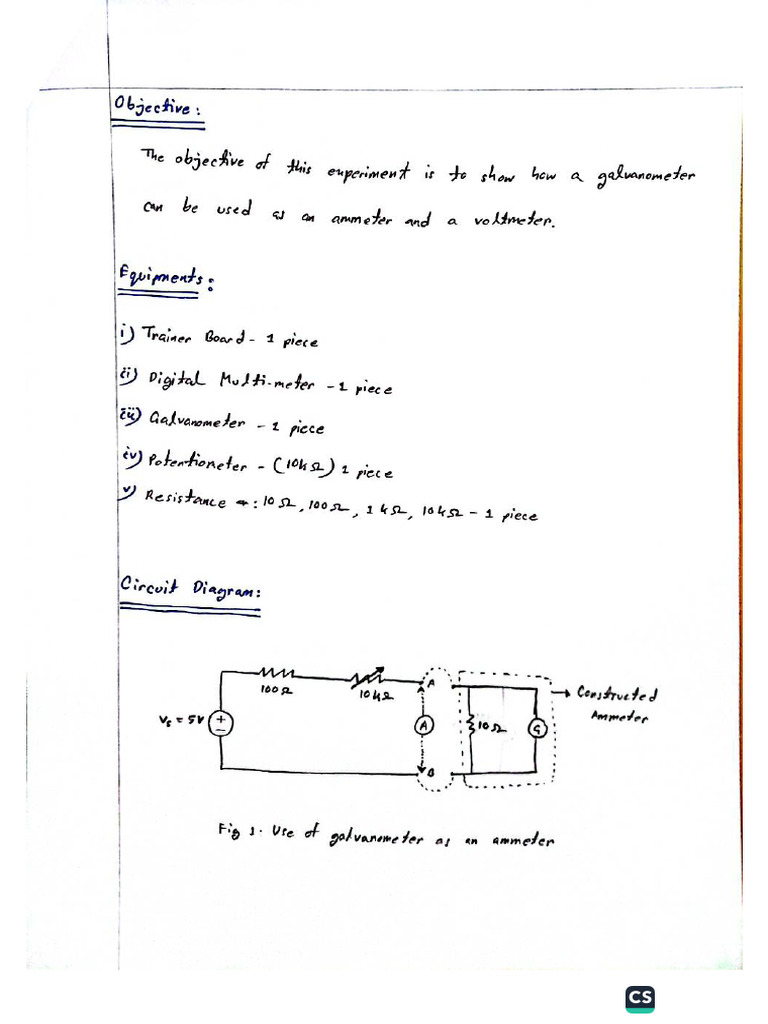 Objective:
The objective of this experiment is to show how a galvanometer
can be used as an ammeter and a voltmeter.
Equipments:
i) Trainer Board - 1 piece
ii) Digital Multi-meter - 1 piece
iii) Galvanometer - 1 piece
iv) Potentiometer - (10kΩ) 1 piece
v) Resistance : 10Ω, 100Ω, 1kΩ, 10kΩ - 1 piece
Circuit Diagram:
100Ω
10kΩ
A
Constructed
Ammeter
Vs = 5V
A
10Ω
G
B
Fig 1. Use of galvanometer as an ammeter
CS